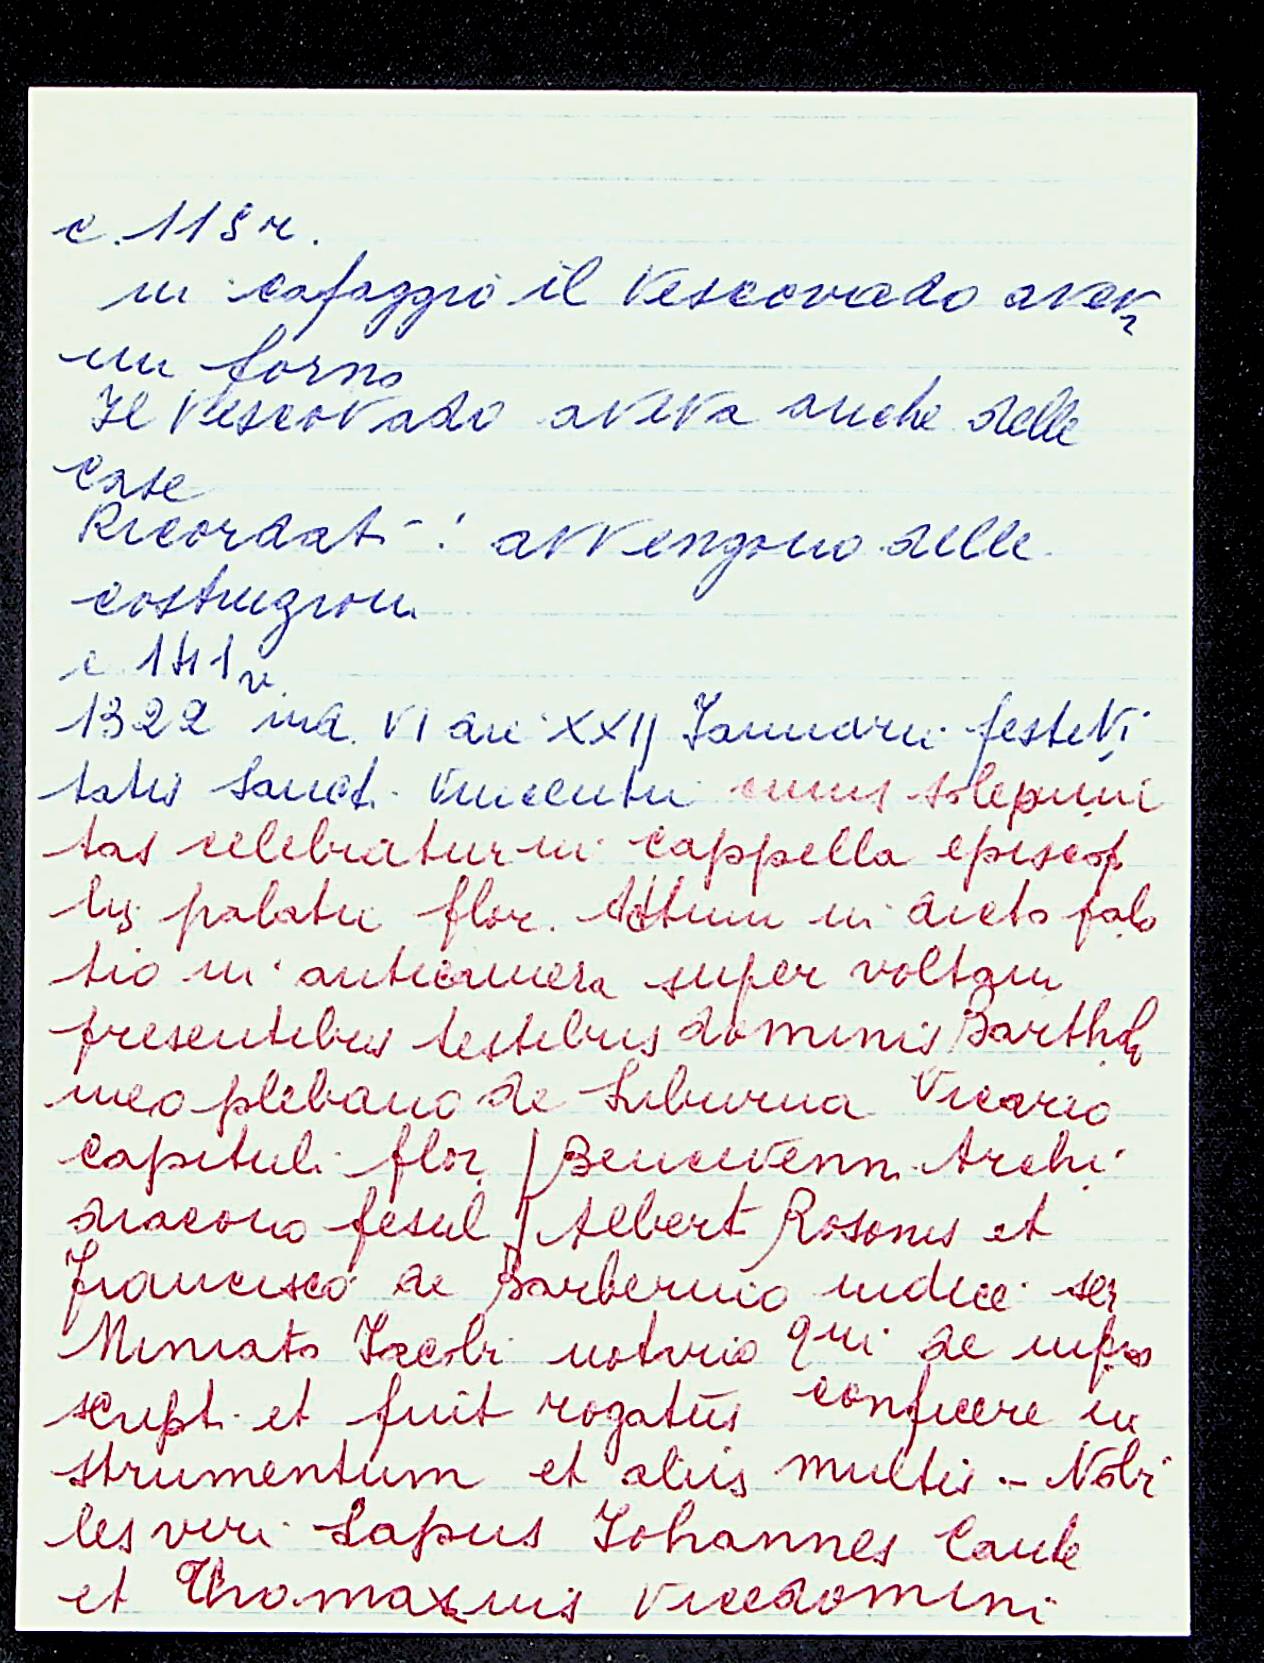 c. 118r.
in cafaggio il Vescovado aveva
un forno
Il Vescovado aveva anche delle
case
Ricordati: avvengono delle
costruzioni
c 141v.
1322 ind. VI die XXII Januarii festivi
tatis Sancti Vincentii cuius solepnni
tas celebratur in cappella episcop
lis palatii flor. Actum in dicto pala
tio in anticamera super voltam
presentibus testibus dominis Bartholo
meo plebano de Vicario
capituli flor / Bencivenni Archi
diacono fesul / Albert Rosonis et
Francisco de Barberino iudice ser
Miniato Jacobi notario qui de infra
script. et fuit rogatus conficere in
strumentum et aliis multis - Nobi
les viri Lapus Johannes Caute
et Thomaxinis Vicedomini